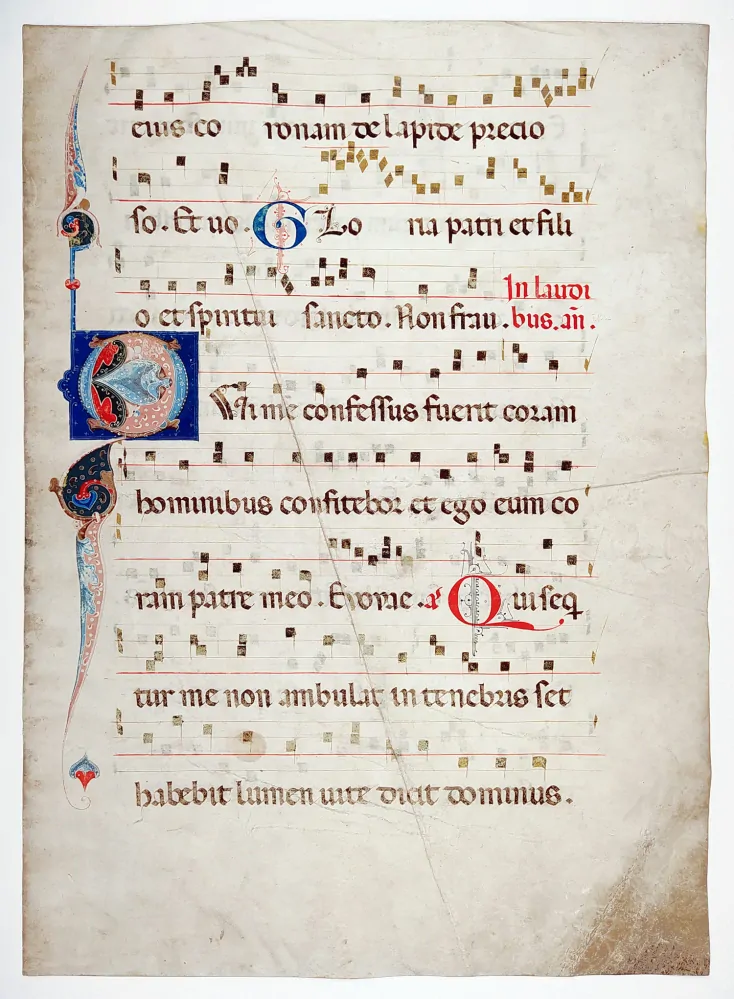 eius co ronam de lapide precio
so. Et uo. GLo ria patri et fili
o et spiritui sancto. Non frau. In laudi
bus. añ.
QUi me confessus fuerit coram
hominibus confitebor et ego eum co
ram patre meo. Evovae. a͂ Qui seq
tur me non ambulat in tenebris set
habebit lumen uite dicit dominus.